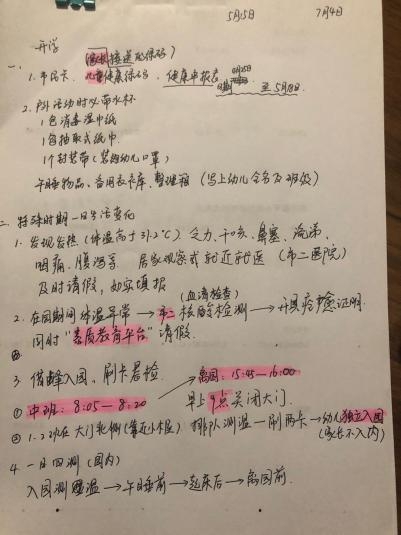 5月5日 7月4日
开学
(家长接送 取绿码)
一、
1. 市民卡、儿童健康绿码、健康申报表
至5月18日
2. 户外活动时必带水杯
1包消毒湿巾纸
1包抽取式纸巾
1个封装带(装幼儿口罩)
午睡物品、备用衣衣库、整理箱 (写上幼儿全名及班级)
二、特殊时期一日生活变化
1. 发现发热(体温高于37.2℃)、乏力、干咳、鼻塞、流涕、
咽痛、腹泻等 居家观察或就近就医 (市二医院)
及时请假,如实填报
(血清检查)
2. 在园期间体温异常→市二核酸检测→开具病愈证明.
同时"素质教育平台"请假.
3. 错峰入园、刷卡晨检
离园:15:45—16:00
① 中班:8:05—8:20 早上9点关闭大门.
② 1.2 大门 排队测温—刷两卡→幼儿独立入园
(家长不入内)
4. 一日四测(园内)
入园测温→午睡前→起床后→离园前.